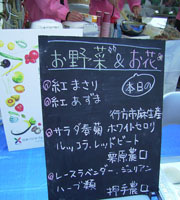 お野菜&お花
本日の
紅まさり
紅あずま
行方市麻生産
サラダ春菊 ホワイトセロリ
ルッコラ、レッドビート
栗原農口
レースラベンダー、ジュリアン
ハーブ類
押手農口